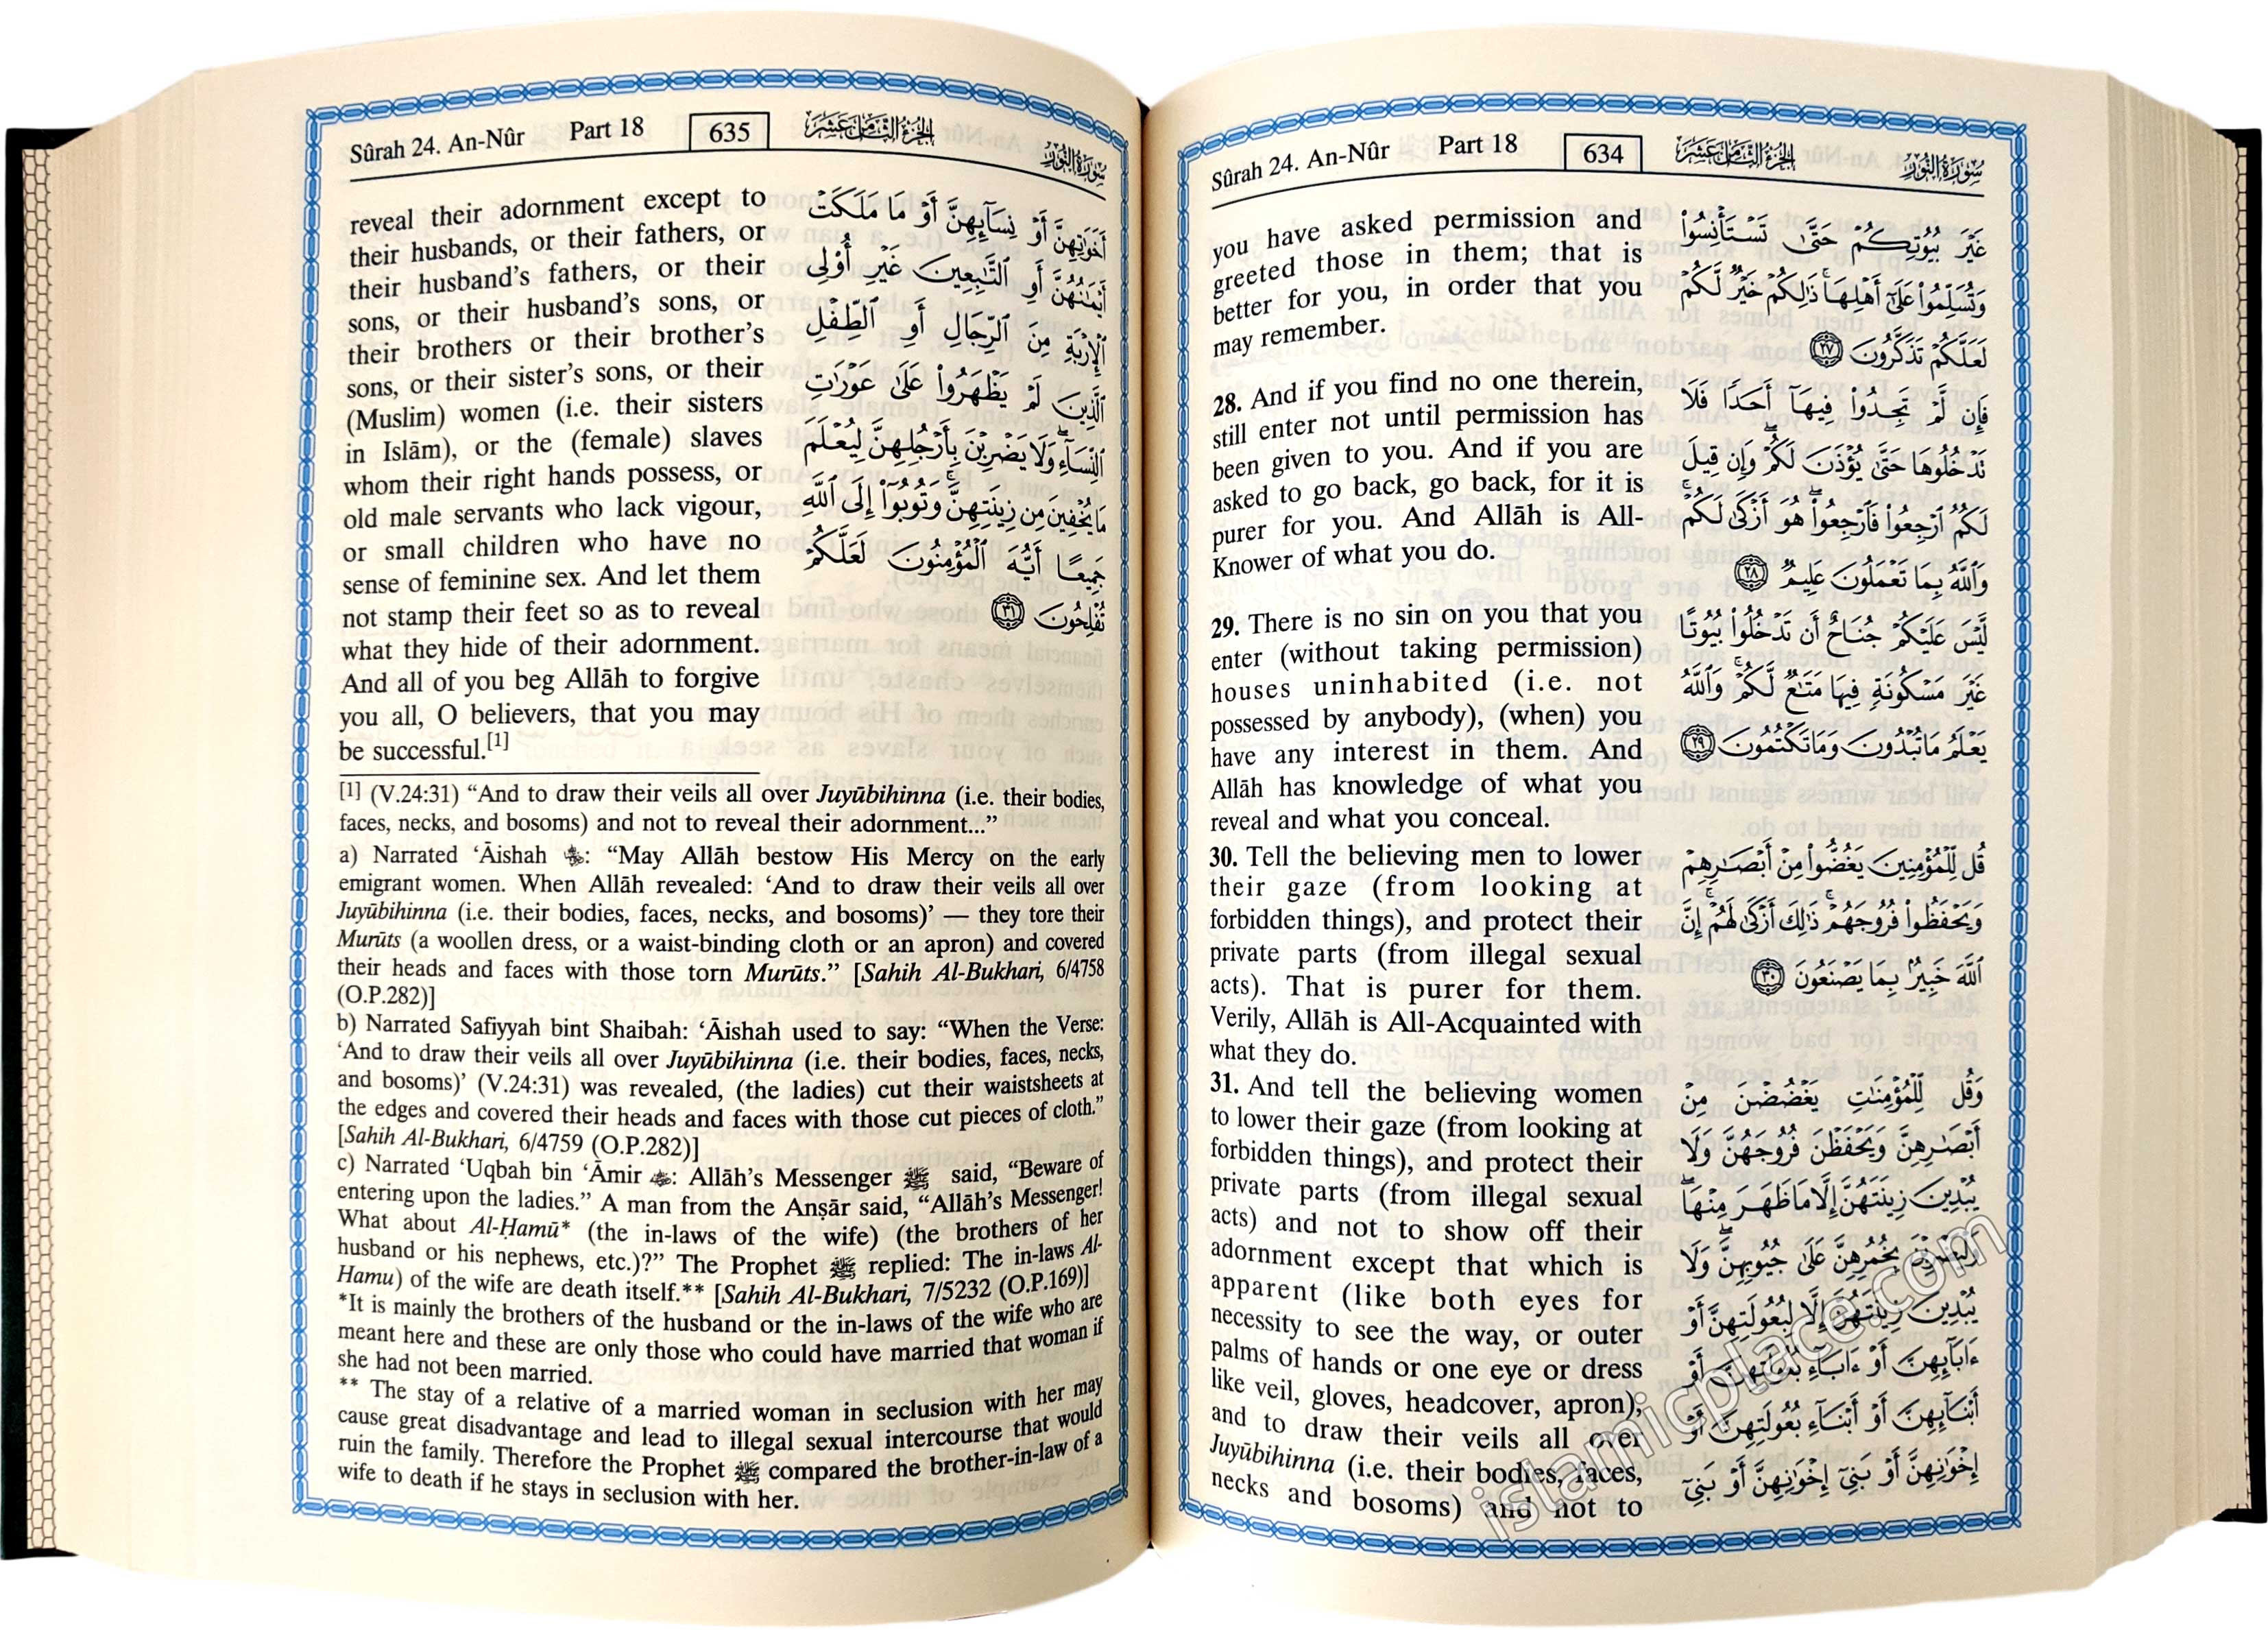 Sûrah 24. An-Nûr Part 18 634 الجزء الثامن عشر سورة النور
you have asked permission and
greeted those in them; that is
better for you, in order that you
may remember.
28. And if you find no one therein,
still enter not until permission has
been given to you. And if you are
asked to go back, go back, for it is
purer for you. And Allāh is All-
Knower of what you do.
29. There is no sin on you that you
enter (without taking permission)
houses uninhabited (i.e. not
possessed by anybody), (when) you
have any interest in them. And
Allāh has knowledge of what you
reveal and what you conceal.
30. Tell the believing men to lower
their gaze (from looking at
forbidden things), and protect their
private parts (from illegal sexual
acts). That is purer for them.
Verily, Allāh is All-Acquainted with
what they do.
31. And tell the believing women
to lower their gaze (from looking at
forbidden things), and protect their
private parts (from illegal sexual
acts) and not to show off their
adornment except that which is
apparent (like both eyes for
necessity to see the way, or outer
palms of hands or one eye or dress
like veil, gloves, headcover, apron),
and to draw their veils all over
Juyūbihinna (i.e. their bodies, faces,
necks and bosoms) and not to
غَيْرَ بُيُوتِكُمْ حَتَّىٰ تَسْتَأْنِسُوا۟
وَتُسَلِّمُوا۟ عَلَىٰٓ أَهْلِهَا ۚ ذَٰلِكُمْ خَيْرٌ لَّكُمْ
لَعَلَّكُمْ تَذَكَّرُونَ ٢٧
فَإِن لَّمْ تَجِدُوا۟ فِيهَآ أَحَدًا فَلَا
تَدْخُلُوهَا حَتَّىٰ يُؤْذَنَ لَكُمْ ۖ وَإِن قِيلَ
لَكُمُ ٱرْجِعُوا۟ فَٱرْجِعُوا۟ ۖ هُوَ أَزْكَىٰ لَكُمْ ۚ
وَٱللَّهُ بِمَا تَعْمَلُونَ عَلِيمٌ ٢٨
لَّيْسَ عَلَيْكُمْ جُنَاحٌ أَن تَدْخُلُوا۟ بُيُوتًا
غَيْرَ مَسْكُونَةٍ فِيهَا مَتَٰعٌ لَّكُمْ ۚ وَٱللَّهُ
يَعْلَمُ مَا تُبْدُونَ وَمَا تَكْتُمُونَ ٢٩
قُل لِّلْمُؤْمِنِينَ يَغُضُّوا۟ مِنْ أَبْصَٰرِهِمْ
وَيَحْفَظُوا۟ فُرُوجَهُمْ ۚ ذَٰلِكَ أَزْكَىٰ لَهُمْ ۗ إِنَّ
ٱللَّهَ خَبِيرٌۢ بِمَا يَصْنَعُونَ ٣٠
وَقُل لِّلْمُؤْمِنَٰتِ يَغْضُضْنَ مِنْ
أَبْصَٰرِهِنَّ وَيَحْفَظْنَ فُرُوجَهُنَّ وَلَا
يُبْدِينَ زِينَتَهُنَّ إِلَّا مَا ظَهَرَ مِنْهَا ۖ
وَلْيَضْرِبْنَ بِخُمُرِهِنَّ عَلَىٰ جُيُوبِهِنَّ ۖ وَلَا
يُبْدِينَ زِينَتَهُنَّ إِلَّا لِبُعُولَتِهِنَّ أَوْ
ءَابَآئِهِنَّ أَوْ ءَابَآءِ بُعُولَتِهِنَّ أَوْ
أَبْنَآئِهِنَّ أَوْ أَبْنَآءِ بُعُولَتِهِنَّ أَوْ
إِخْوَٰنِهِنَّ أَوْ بَنِىٓ إِخْوَٰنِهِنَّ أَوْ بَنِىٓ
islamicplace.com
Sûrah 24. An-Nûr Part 18 635 الجزء الثامن عشر سورة النور
reveal their adornment except to
their husbands, or their fathers, or
their husband's fathers, or their
sons, or their husband's sons, or
their brothers or their brother's
sons, or their sister's sons, or their
(Muslim) women (i.e. their sisters
in Islām), or the (female) slaves
whom their right hands possess, or
old male servants who lack vigour,
or small children who have no
sense of feminine sex. And let them
not stamp their feet so as to reveal
what they hide of their adornment.
And all of you beg Allāh to forgive
you all, O believers, that you may
be successful.[1]
أَخَوَٰتِهِنَّ أَوْ نِسَآئِهِنَّ أَوْ مَا مَلَكَتْ
أَيْمَٰنُهُنَّ أَوِ ٱلتَّٰبِعِينَ غَيْرِ أُو۟لِى
ٱلْإِرْبَةِ مِنَ ٱلرِّجَالِ أَوِ ٱلطِّفْلِ
ٱلَّذِينَ لَمْ يَظْهَرُوا۟ عَلَىٰ عَوْرَٰتِ
ٱلنِّسَآءِ ۖ وَلَا يَضْرِبْنَ بِأَرْجُلِهِنَّ لِيُعْلَمَ
مَا يُخْفِينَ مِن زِينَتِهِنَّ ۚ وَتُوبُوٓا۟ إِلَى ٱللَّهِ
جَمِيعًا أَيُّهَ ٱلْمُؤْمِنُونَ لَعَلَّكُمْ
تُفْلِحُونَ ٣١
[1] (V.24:31) “And to draw their veils all over Juyūbihinna (i.e. their bodies,
faces, necks, and bosoms) and not to reveal their adornment...”
a) Narrated ‘Āishah: “May Allāh bestow His Mercy on the early
emigrant women. When Allāh revealed: ‘And to draw their veils all over
Juyūbihinna (i.e. their bodies, faces, necks, and bosoms)’ — they tore their
Murūts (a woollen dress, or a waist-binding cloth or an apron) and covered
their heads and faces with those torn Murūts.” [Sahih Al-Bukhari, 6/4758
(O.P.282)]
b) Narrated Safiyyah bint Shaibah: ‘Āishah used to say: “When the Verse:
‘And to draw their veils all over Juyūbihinna (i.e. their bodies, faces, necks,
and bosoms)’ (V.24:31) was revealed, (the ladies) cut their waistsheets at
the edges and covered their heads and faces with those cut pieces of cloth.”
[Sahih Al-Bukhari, 6/4759 (O.P.282)]
c) Narrated ‘Uqbah bin ‘Āmir: Allāh's Messenger ﷺ said, “Beware of
entering upon the ladies.” A man from the Anṣār said, “Allāh's Messenger!
What about Al-Ḥamū* (the in-laws of the wife) (the brothers of her
husband or his nephews, etc.)?” The Prophet ﷺ replied: The in-laws Al-
Hamu) of the wife are death itself.** [Sahih Al-Bukhari, 7/5232 (O.P.169)]
*It is mainly the brothers of the husband or the in-laws of the wife who are
meant here and these are only those who could have married that woman if
she had not been married.
** The stay of a relative of a married woman in seclusion with her may
cause great disadvantage and lead to illegal sexual intercourse that would
ruin the family. Therefore the Prophet ﷺ compared the brother-in-law of a
wife to death if he stays in seclusion with her.